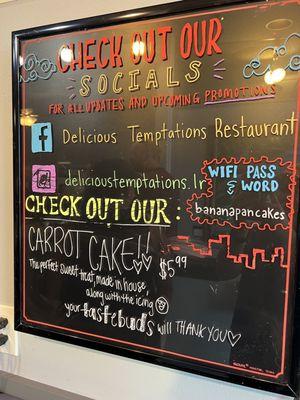 CHECK OUT OUR
SOCIALS
FOR ALL UPDATES AND UPCOMING PROMOTIONS
f Delicious Temptations Restaurant
delicioustemptations.lr
WIFI PASS
WORD
bananapancakes
CHECK OUT OUR :
CARROT CAKE!!
$5.99
The perfect sweet treat, made in house
along with the icing
your tastebuds will THANK YOU